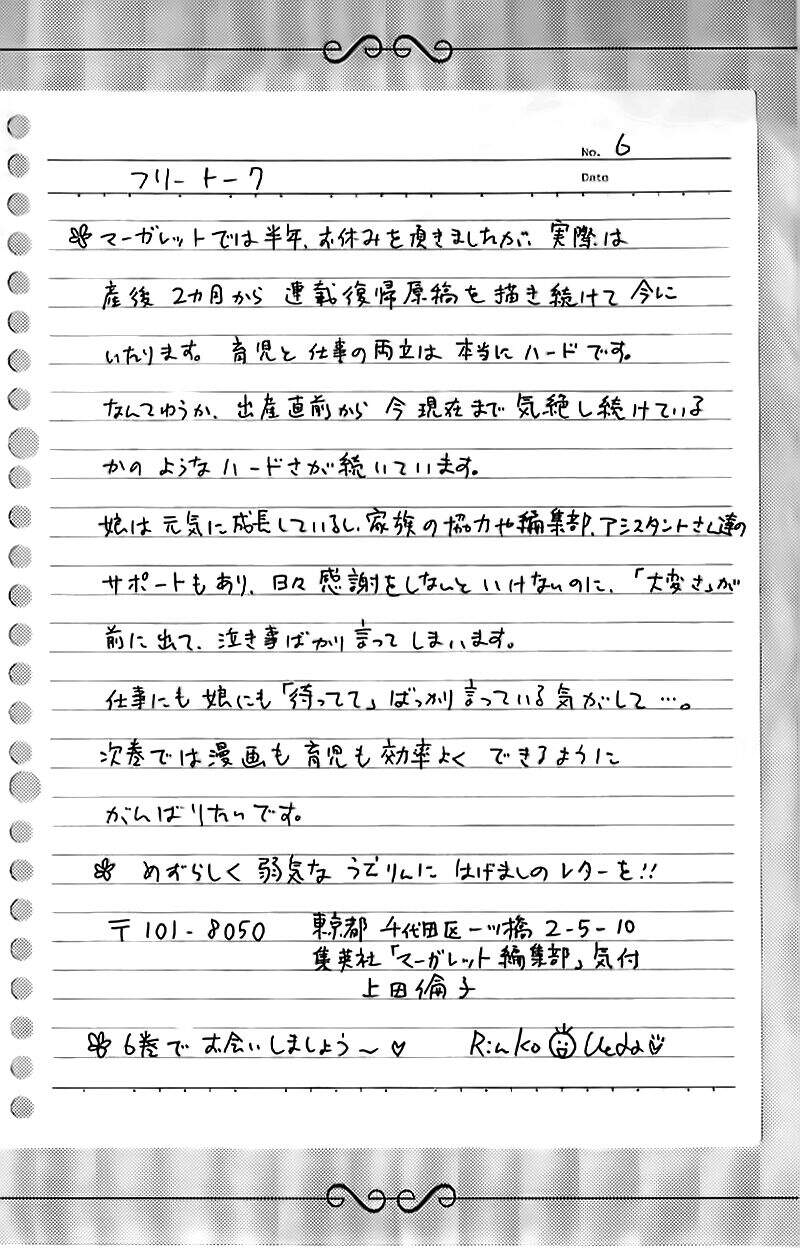 No. 6
フリートーク
Date
マーガレットでは半年、お休みを頂きましたが、実際は
産後 2カ月から 連載復帰原稿を描き続けて 今に
いたります。 育児と仕事の両立は 本当にハードです。
なんてゆうか、出産直前から 今現在まで気絶し続けている
かのようなハードさが続いています。
娘は元気に成長しているし、家族の協力や編集部、アシスタントさん達の
サポートもあり、日々感謝をしないといけないのに、「大変さ」が
前に出て、泣き事ばかり言ってしまいます。
仕事にも娘にも「待ってて」ばっかり言っている気がして…。
次巻では漫画も育児も効率よく できるように
がんばりたいです。
めずらしく弱気な うどりんに はげましのレターを!!
〒101-8050 東京都千代田区一ツ橋 2-5-10
集英社「マーガレット編集部」気付
上田倫子
6巻で お会いしましょう〜♡ Rinko Ueda